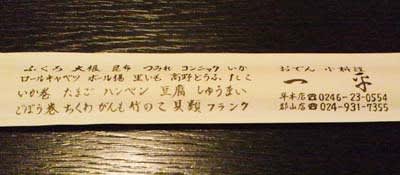 ふくろ 大根 昆布 つみれ コンニャク いか
ロールキャベツ ボール揚 里いも 高野とうふ たこ
いか巻 たまご ハンペン 豆腐 しゅうまい
ごぼう巻 ちくわ がんも 竹のこ 貝類 フランク
おでん 小料理
一平
平本店☎0246-23-0554
郡山店☎024-931-7355